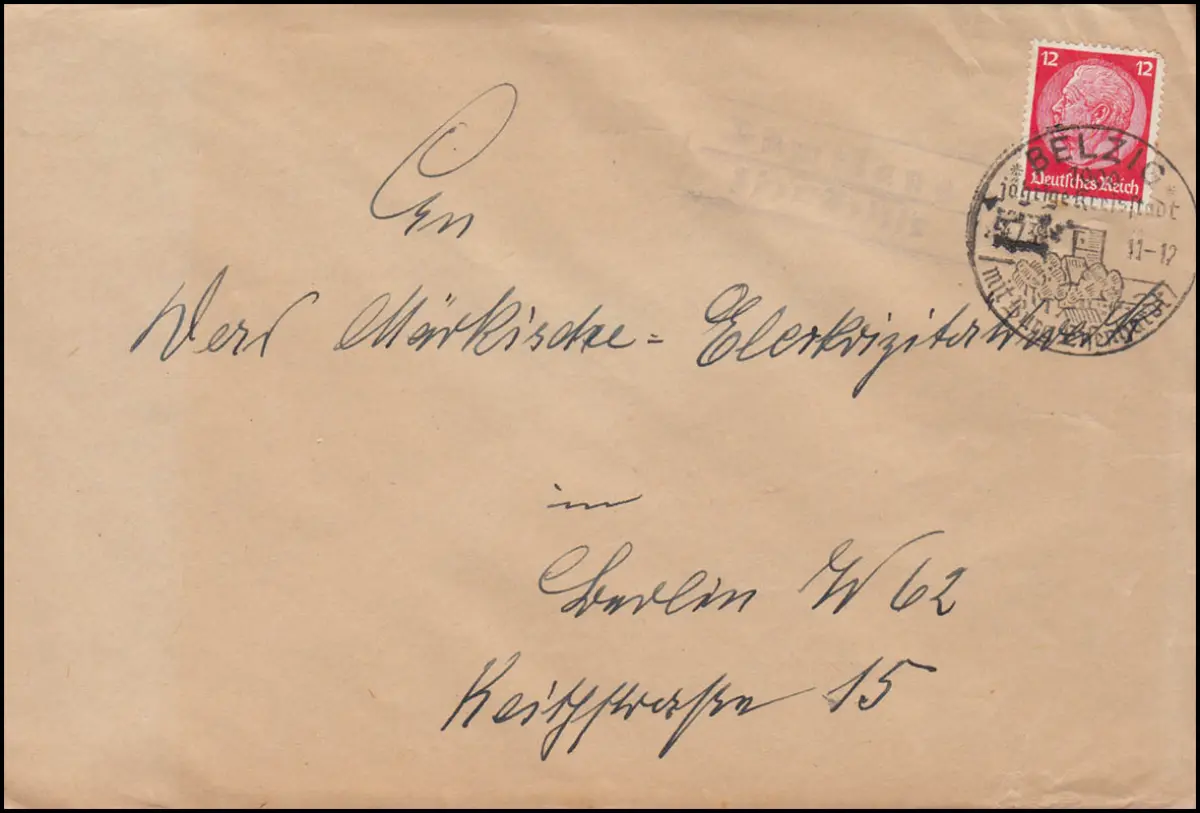 12 12
Deutsches Reich
BELZIG
jährige Kreisstadt
11-12
mit Burg
An
Das Märkische = Elecktrizitätswerk
in
Berlin W 62
Keithstraße 15